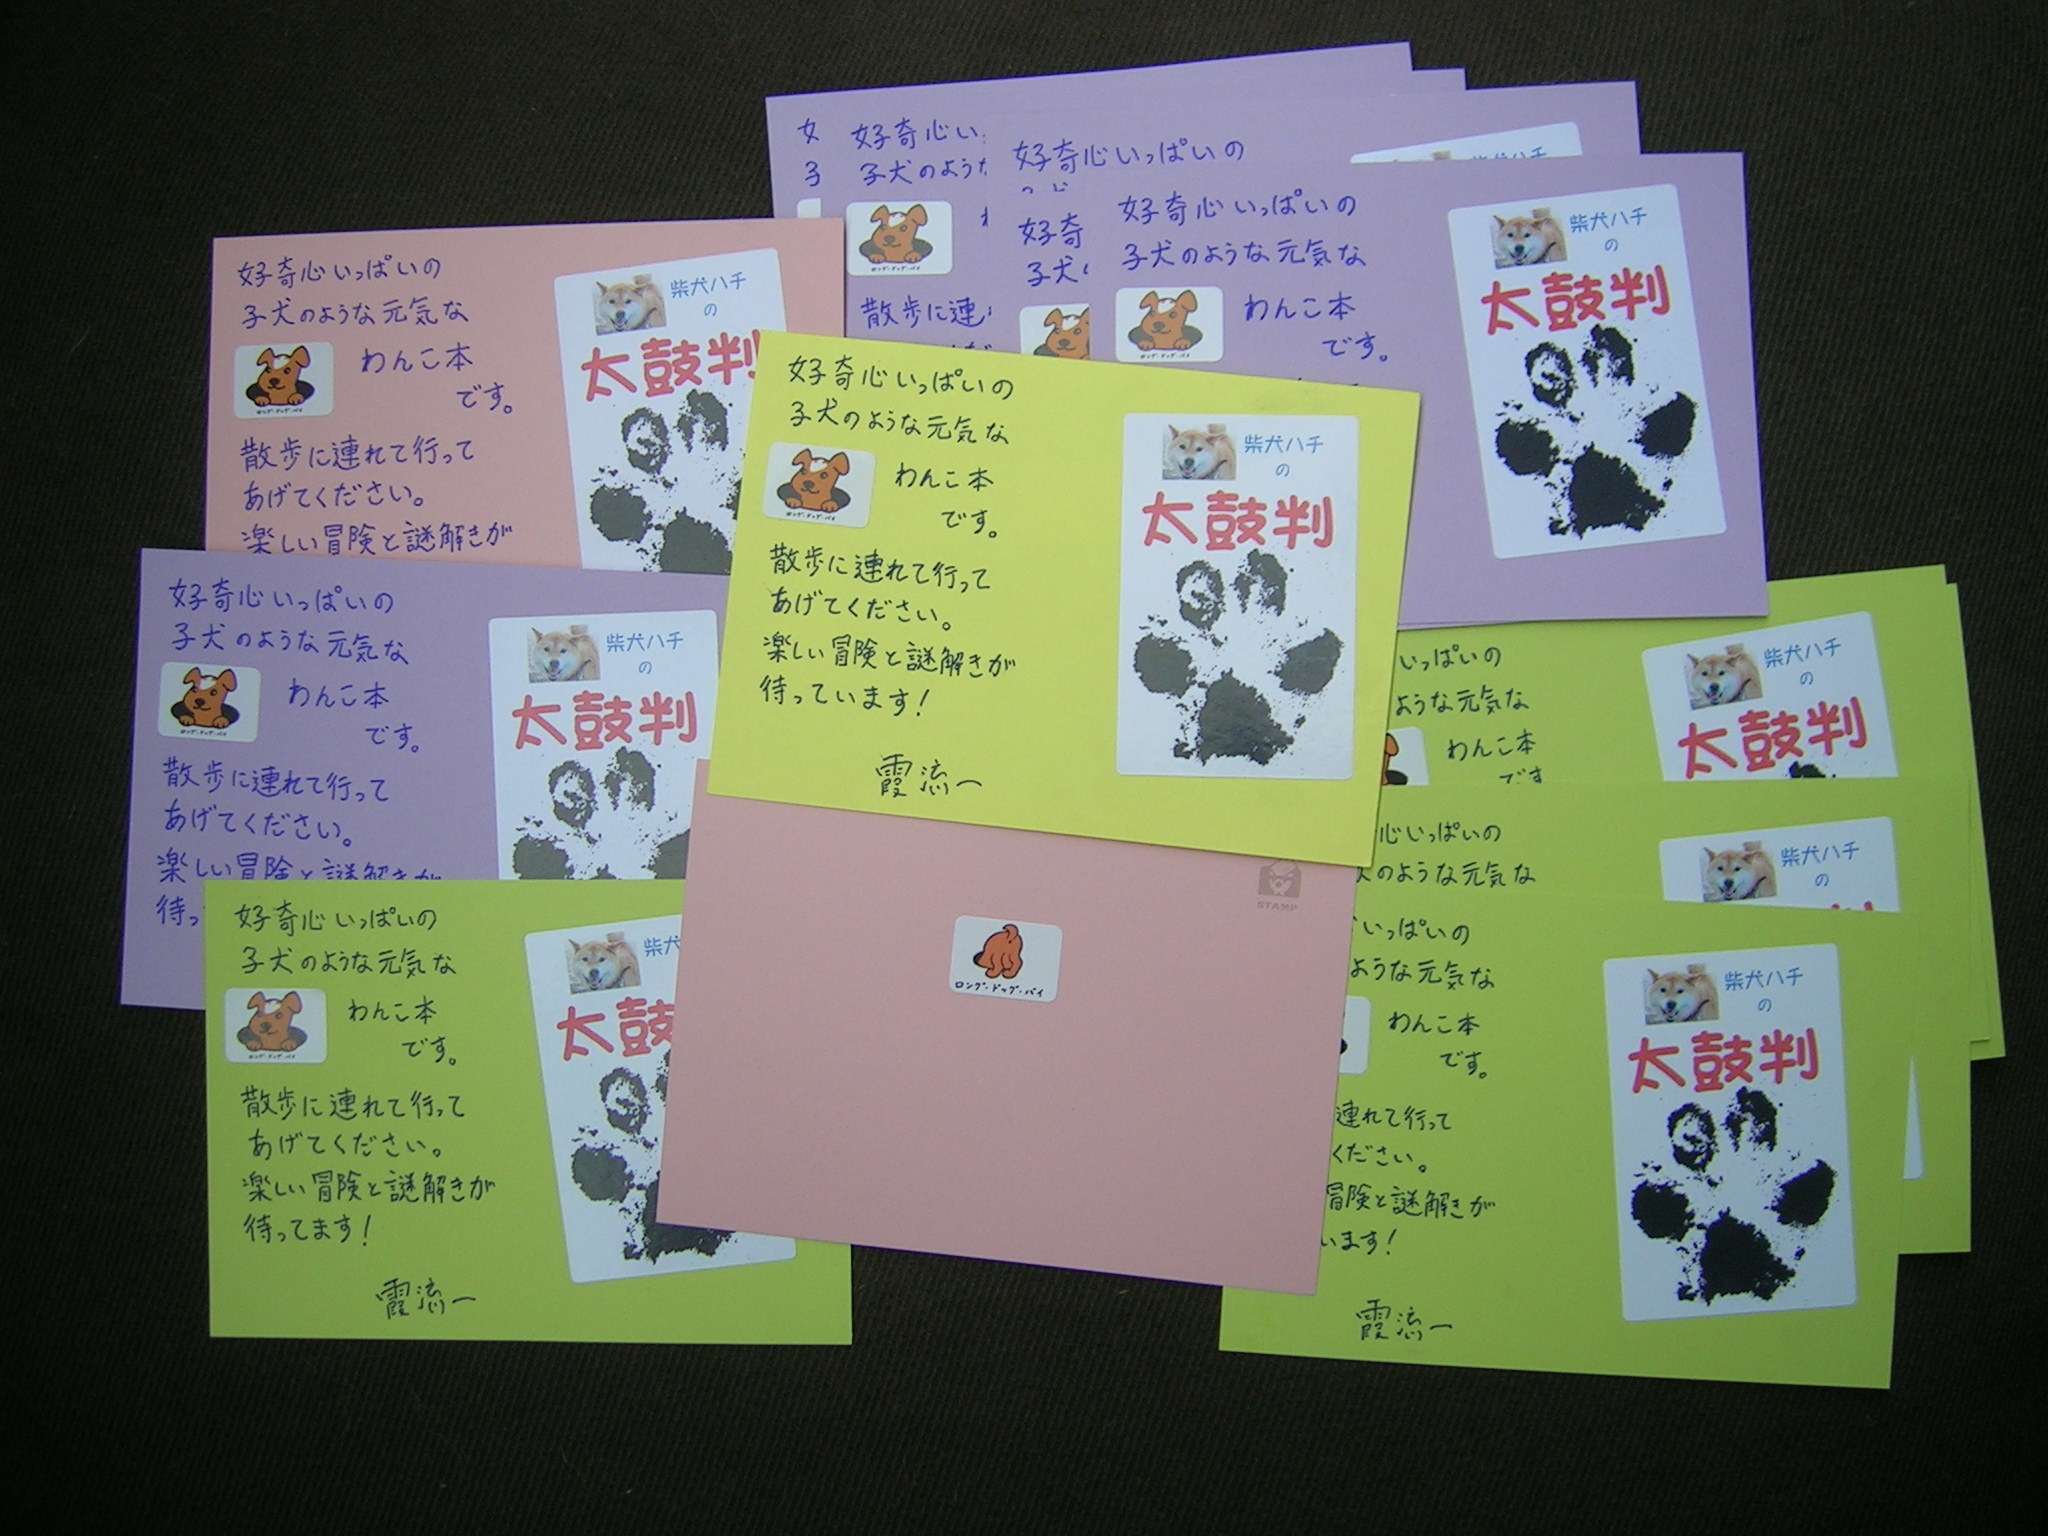 女
子
好奇心い
子犬のような
散歩に連
好奇心いっぱいの
好奇
子犬
好奇心いっぱいの
子犬のような元気な
わんこ本
です。
柴犬ハチ
の
太鼓判
好奇心いっぱいの
子犬のような元気な
わんこ本
です。
散歩に連れて行って
あげてください。
楽しい冒険と謎解きが
柴犬ハチ
の
太鼓判
ロング・ドッグ・バイ
好奇心いっぱいの
子犬のような元気な
わんこ本
です。
散歩に連れて行って
あげてください。
楽しい冒険と謎解きが
待っています!
霞流一
柴犬ハチ
の
太鼓判
ロング・ドッグ・バイ
好奇心いっぱいの
子犬のような元気な
わんこ本
です。
散歩に連れて行って
あげてください。
楽しい冒険と謎解きが
待っ
柴犬ハチ
の
太鼓判
ロング・ドッグ・バイ
いっぱいの
ような元気な
わんこ本
です
柴犬ハチ
の
太鼓判
心いっぱいの
犬のような元気な
柴犬ハチ
の
いっぱいの
ような元気な
わんこ本
です。
連れて行って
ください。
冒険と謎解きが
います!
霞流一
柴犬ハチ
の
太鼓判
好奇心いっぱいの
子犬のような元気な
わんこ本
です。
散歩に連れて行って
あげてください。
楽しい冒険と謎解きが
待ってます!
霞流一
柴犬
の
太鼓
ロング・ドッグ・バイ
STAMP
ロング・ドッグ・バイ